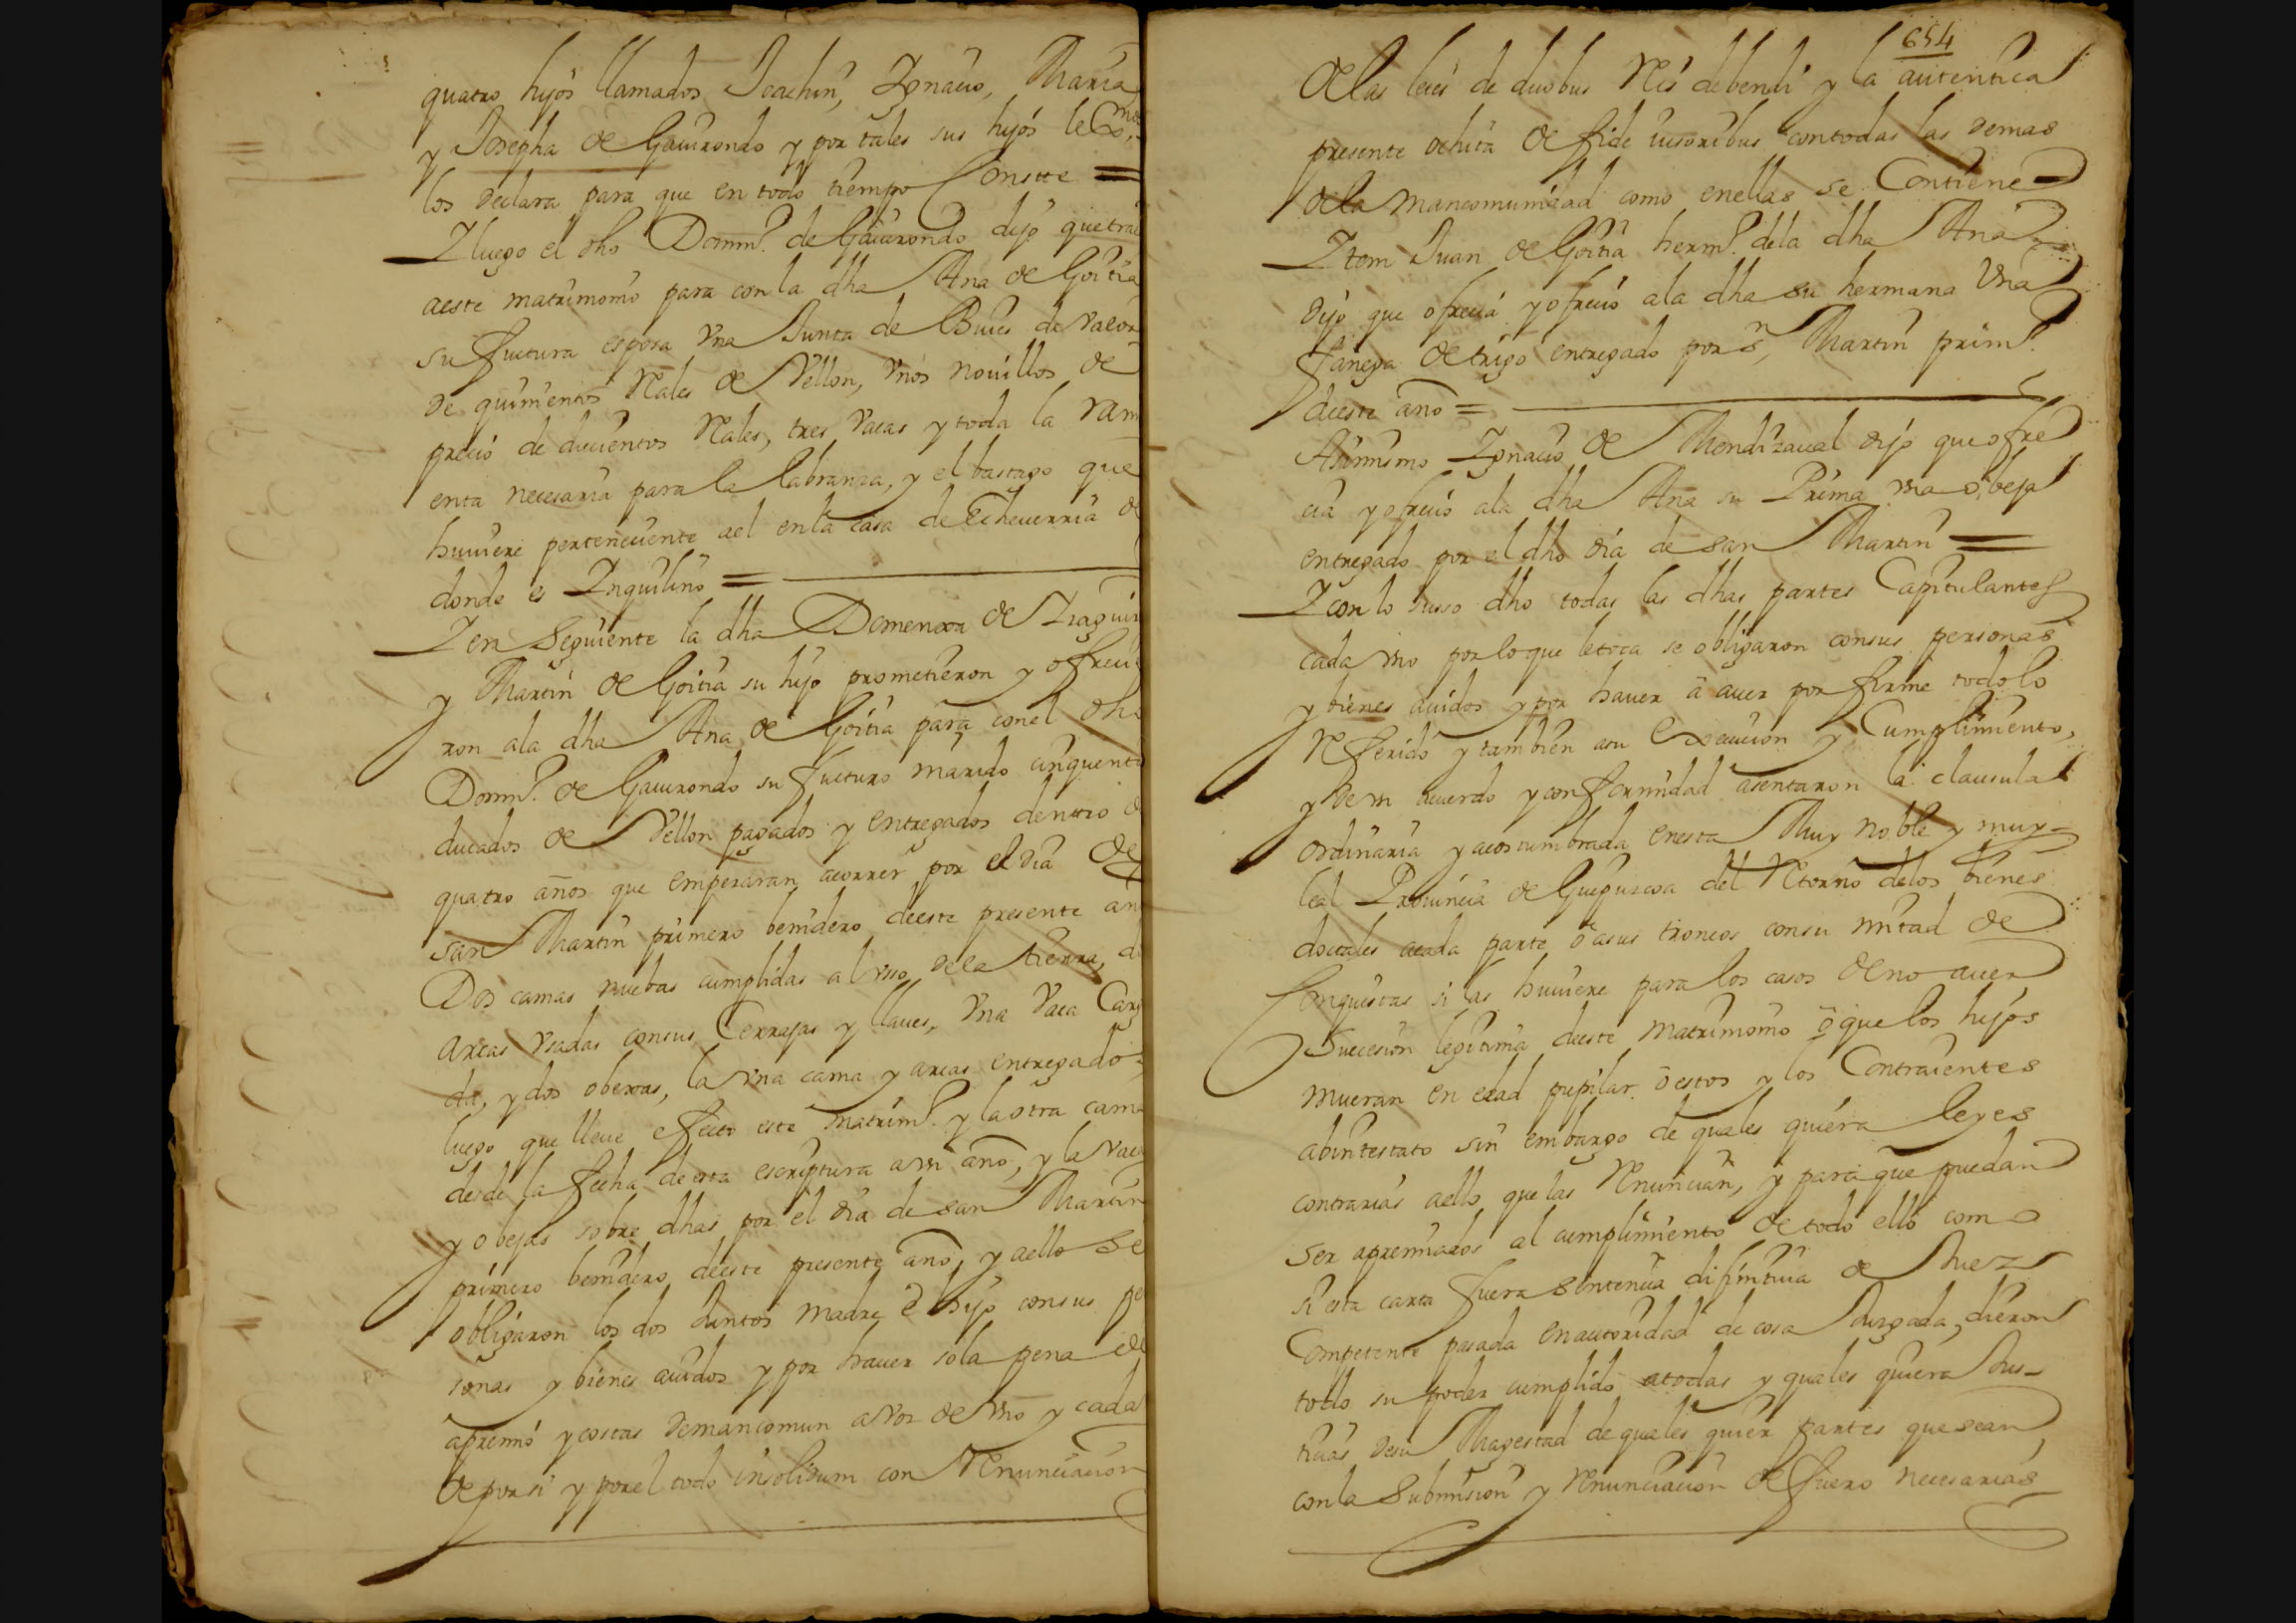 quatro hijos llamados Joachin, Ygnacio, Maria
y Josepha de Gavirondo y por tales sus hijos lexmos
los declara para que en todo tiempo Conste =
Y luego el dho Domin.º de Gavirondo dijo que trae
a este matrimonio para con la dha Ana de Goitia
su fuctura esposa Vna Junta de Bues de valor
de quinientos Reales de Vellon, vnos novillos de
precio de ducientos Reales, tres Vacas y toda la ram
enta necesaria para la labranza, y el bastago que
huviere perteneciente a el en la casa de Echeverria de
donde es Ynquilino =
Y en Seguiente la dha Domenxa de
y Martin de Goitia su hijo prometieron y ofrecie
ron a la dha Ana de Goitia para con el dho
Domin.º de Gavirondo su fucturo marido cinquenta
ducados de Vellon pagados y entregados dentro de
quatro años que empezaran a correr por el dia de
san Martin primero benidero de este presente año
Dos camas nuebas cumplidas al vsso de la tierra, dos
arcas vsadas con sus Cerrajas y llaves, Vna Vaca Carg
da, y dos obexas, la vna cama y arcas entregado
luego que lleve efecto este matrim.º y la otra cama
desde la fecha de esta escriptura a vn año, y la vaca
y obejas sobre dhas por el dia de san Martin
primero benidero de este presente año, y a ello se
obligaron los dos Juntos madre e hijo con sus per
sonas y bienes avidos y por haver so la pena de
apremio y costas de mancomun a voz de vno y cada
de por si y por el todo insolidum con Renunciacion
654
de las leies de duobus Reis debendi y la autentica
presente ochita de fide iusoribus con todas las demas
de la mancomunidad como en ellas se Contiene
Ytem Juan de Goitia herm.º de la dha Ana
Dijo que ofrecia y ofrecio a la dha su hermana Vna
fanega de trigo entregado por sn, Martin prim.º
de este año =
Asimismo Ygnacio de Mendizaval dijo que ofre
cia y ofrecio a la dha Ana su Prima vna obeja
entregado por el dho dia de san Martin =
Y con lo susso dho todas las dhas partes Capitulantes
cada vno por lo que le toca se obligaron con sus personas
y bienes avidos y por haver a aver por firme todo lo
Referido y tambien a su Execucion y Cumplimiento,
y de vn acuerdo y conformidad asentaron la clausula
ordinaria y acostumbrada en esta Muy noble y muy
leal Provincia de Guipuzcoa del Retorno de los bienes
dotales a cada parte o a sus troncos con su mitad de
Conquistas si las huviere para los casos de no aver
Sucesion legitima de este matrimonio o que los hijos
mueran en edad pupilar o estos y los Contraientes
abintestato sin embargo de quales quiera leyes
contrarias a ello que las Renuncian, y para que puedan
ser apremiados al cumplimiento de todo ello como
si esta carta fuera sentencia difinitiva de Juez
Competente pasada en autoridad de cosa Juzgada, dieron
todo su poder cumplido a todas y quales quiera Jus-
ticias de su Magestad de quales quier partes que sean
con la Submision y Renunciacion de fuero necesarias